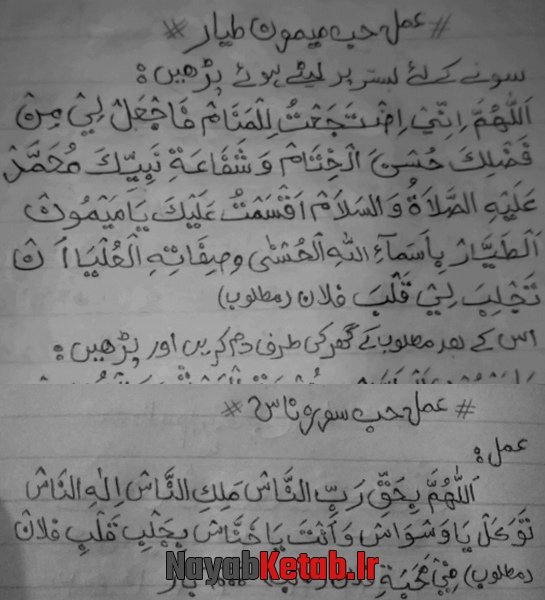 # عمل حب میمون طیار #
سونے کے لئے بستر پر لیٹے ہوئے پڑھیں:
اَللّٰهُمَّ اِنِّیْ اِضْتَجَعْتُ لِلْمَنَامْ فَاجْعَلْ لِیْ مِنْ
فَضْلِكَ حُسْنَ الْخِتَامْ وَ شَفَاعَةِ نَبِيِّكَ مُحَمَّدْ
عَلَيْهِ الصَّلَاةُ وَ السَلَامْ اَقْسَمْتُ عَلَيْكَ يَا مَيْمُونْ
اَلطَيَّارْ بِاَسمآءِ اللهِ الْحُسْنٰی وصِفَاتِهِ الْعُلْيَا اَنْ
تَجْلِبَ لِیْ قَلْبَ فلان (مطلوب)
اس کے بعد مطلوب کے گھر کی طرف دم کریں اور پڑھیں:
# عمل حب سوره ناس #
عمل:
اَللّٰهُمَّ بِحَقِّ رَبِّ النَّاسْ مَلِكِ النَّاسْ اِلٰهِ النَاسْ
تَوَكَلْ يَا وَسْوَاسْ وَ اَنْتَ يَا خَنَّاسْ بِجَلْبِ قَلْبِ فلان
(مطلوب) فِیْ مَحَبَةِ
NayabKetab.Ir